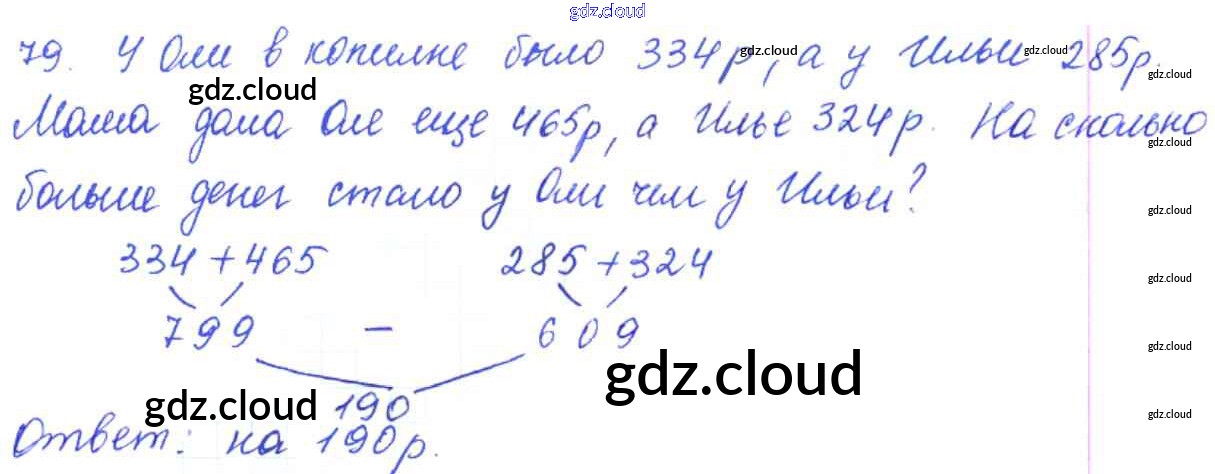 gdz.cloud
79. У Оли в копилке было 334р, а у Ильи 285р.
gdz.cloud
gdz.cloud
gdz.cloud
gdz.cloud
Мама дала Оле еще 465р, а Илье 324р. На сколько
gdz.cloud
больше денег стало у Оли чем у Ильи?
gdz.cloud
334+465 285+324
gdz.cloud
799 - 609
gdz.cloud
gdz.cloud
gdz.cloud
190
gdz.cloud
Ответ: на 190р.